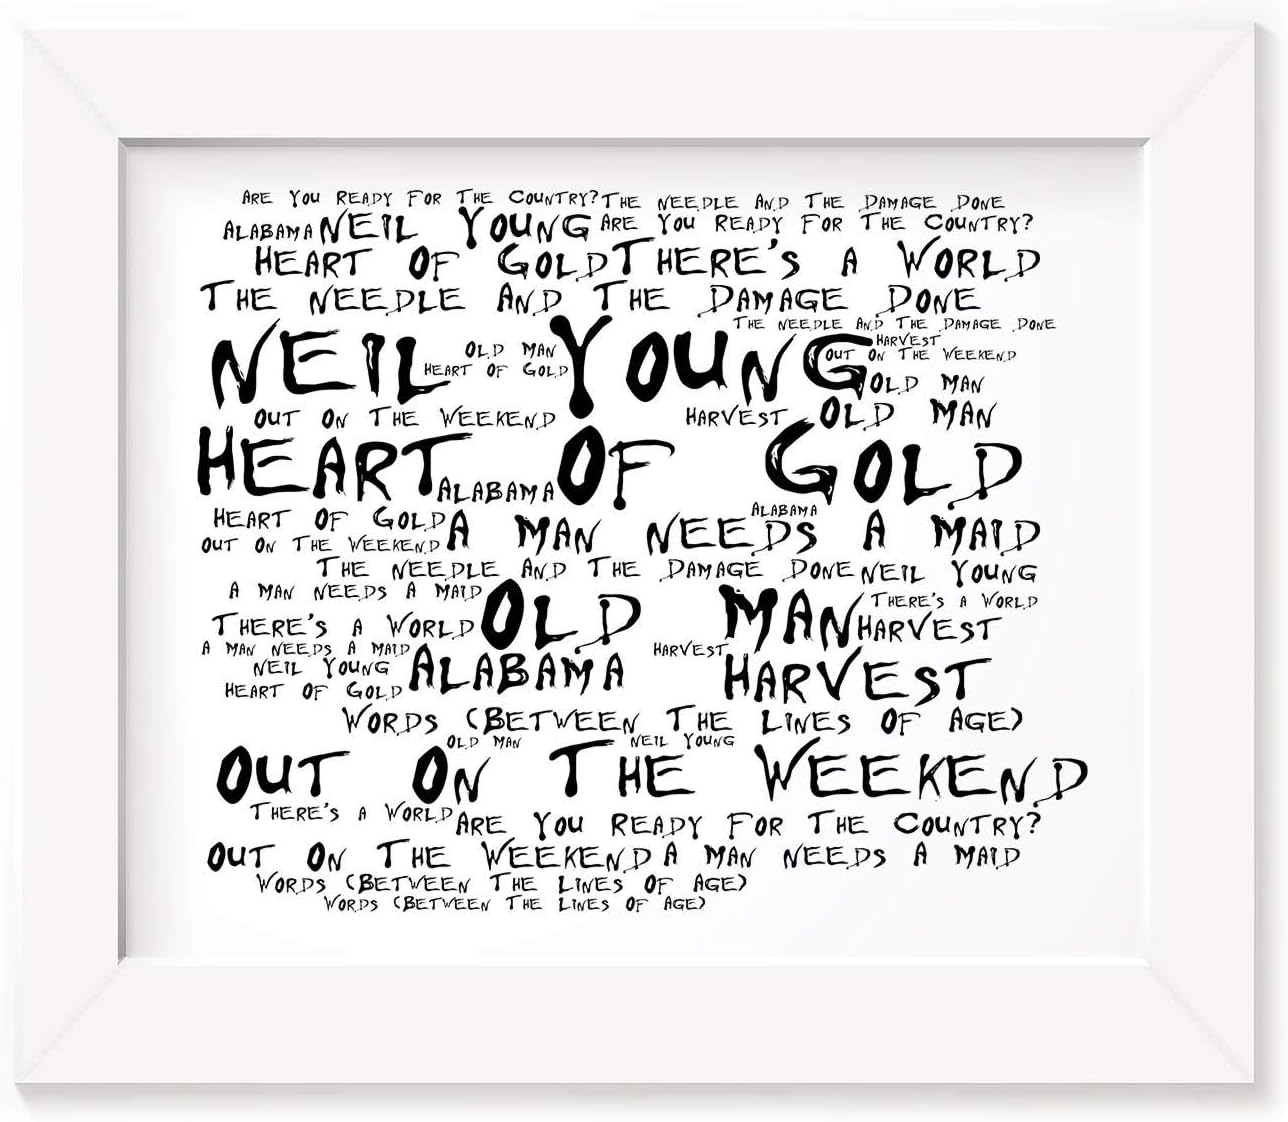 ARE YOU READY FOR THE COUNTRY? THE NEEDLE AND THE DAMAGE DONE
ALABAMA NEIL YOUNG ARE YOU READY FOR THE COUNTRY?
HEART OF GOLD THERE'S A WORLD
THE NEEDLE AND THE DAMAGE DONE
THE NEEDLE AND THE DAMAGE DONE
NEIL YOUNG
HARVEST
OLD MAN
OUT ON THE WEEKEND
HEART OF GOLD
OLD MAN
OUT ON THE WEEKEND
HARVEST
OLD MAN
HEART OF GOLD
ALABAMA
ALABAMA
HEART OF GOLD
A MAN NEEDS A MAID
OUT ON THE WEEKEND
THE NEEDLE AND THE DAMAGE DONE NEIL YOUNG
A MAN NEEDS A MAID
OLD MAN
THERE'S A WORLD
THERE'S A WORLD
HARVEST
A MAN NEEDS A MAID
HARVEST
NEIL YOUNG
ALABAMA
HARVEST
HEART OF GOLD
WORDS (BETWEEN THE LINES OF AGE)
OLD MAN
NEIL YOUNG
OUT ON THE WEEKEND
THERE'S A WORLD
ARE YOU READY FOR THE COUNTRY?
OUT ON THE WEEKEND A MAN NEEDS A MAID
WORDS (BETWEEN THE LINES OF AGE)
WORDS (BETWEEN THE LINES OF AGE)